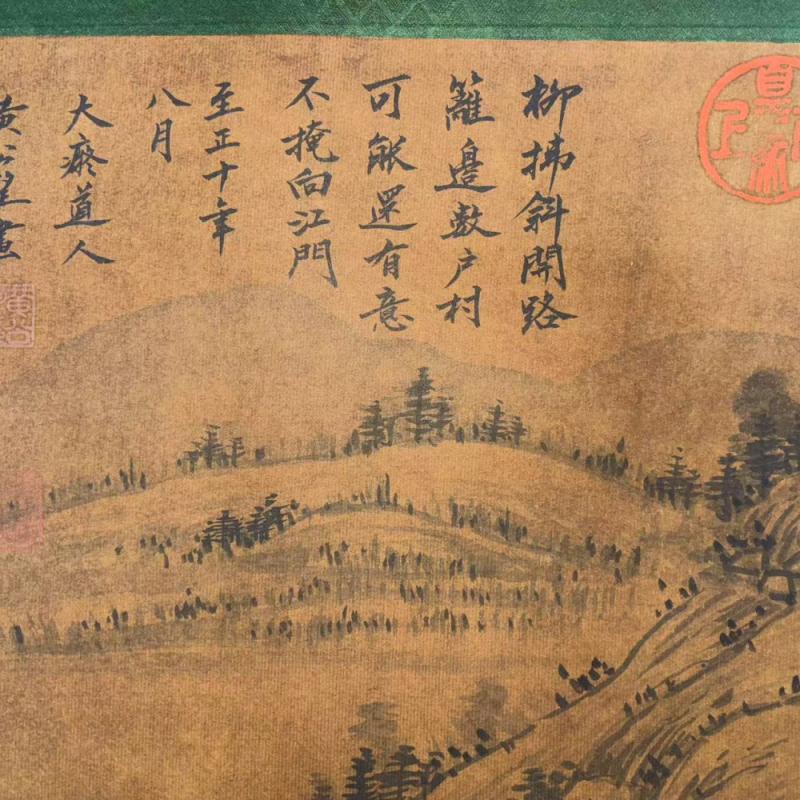 柳拂斜開路
籬邊數户村
可能還有意
不掩向江門
至正十年
八月
大癡道人
黃公望畫